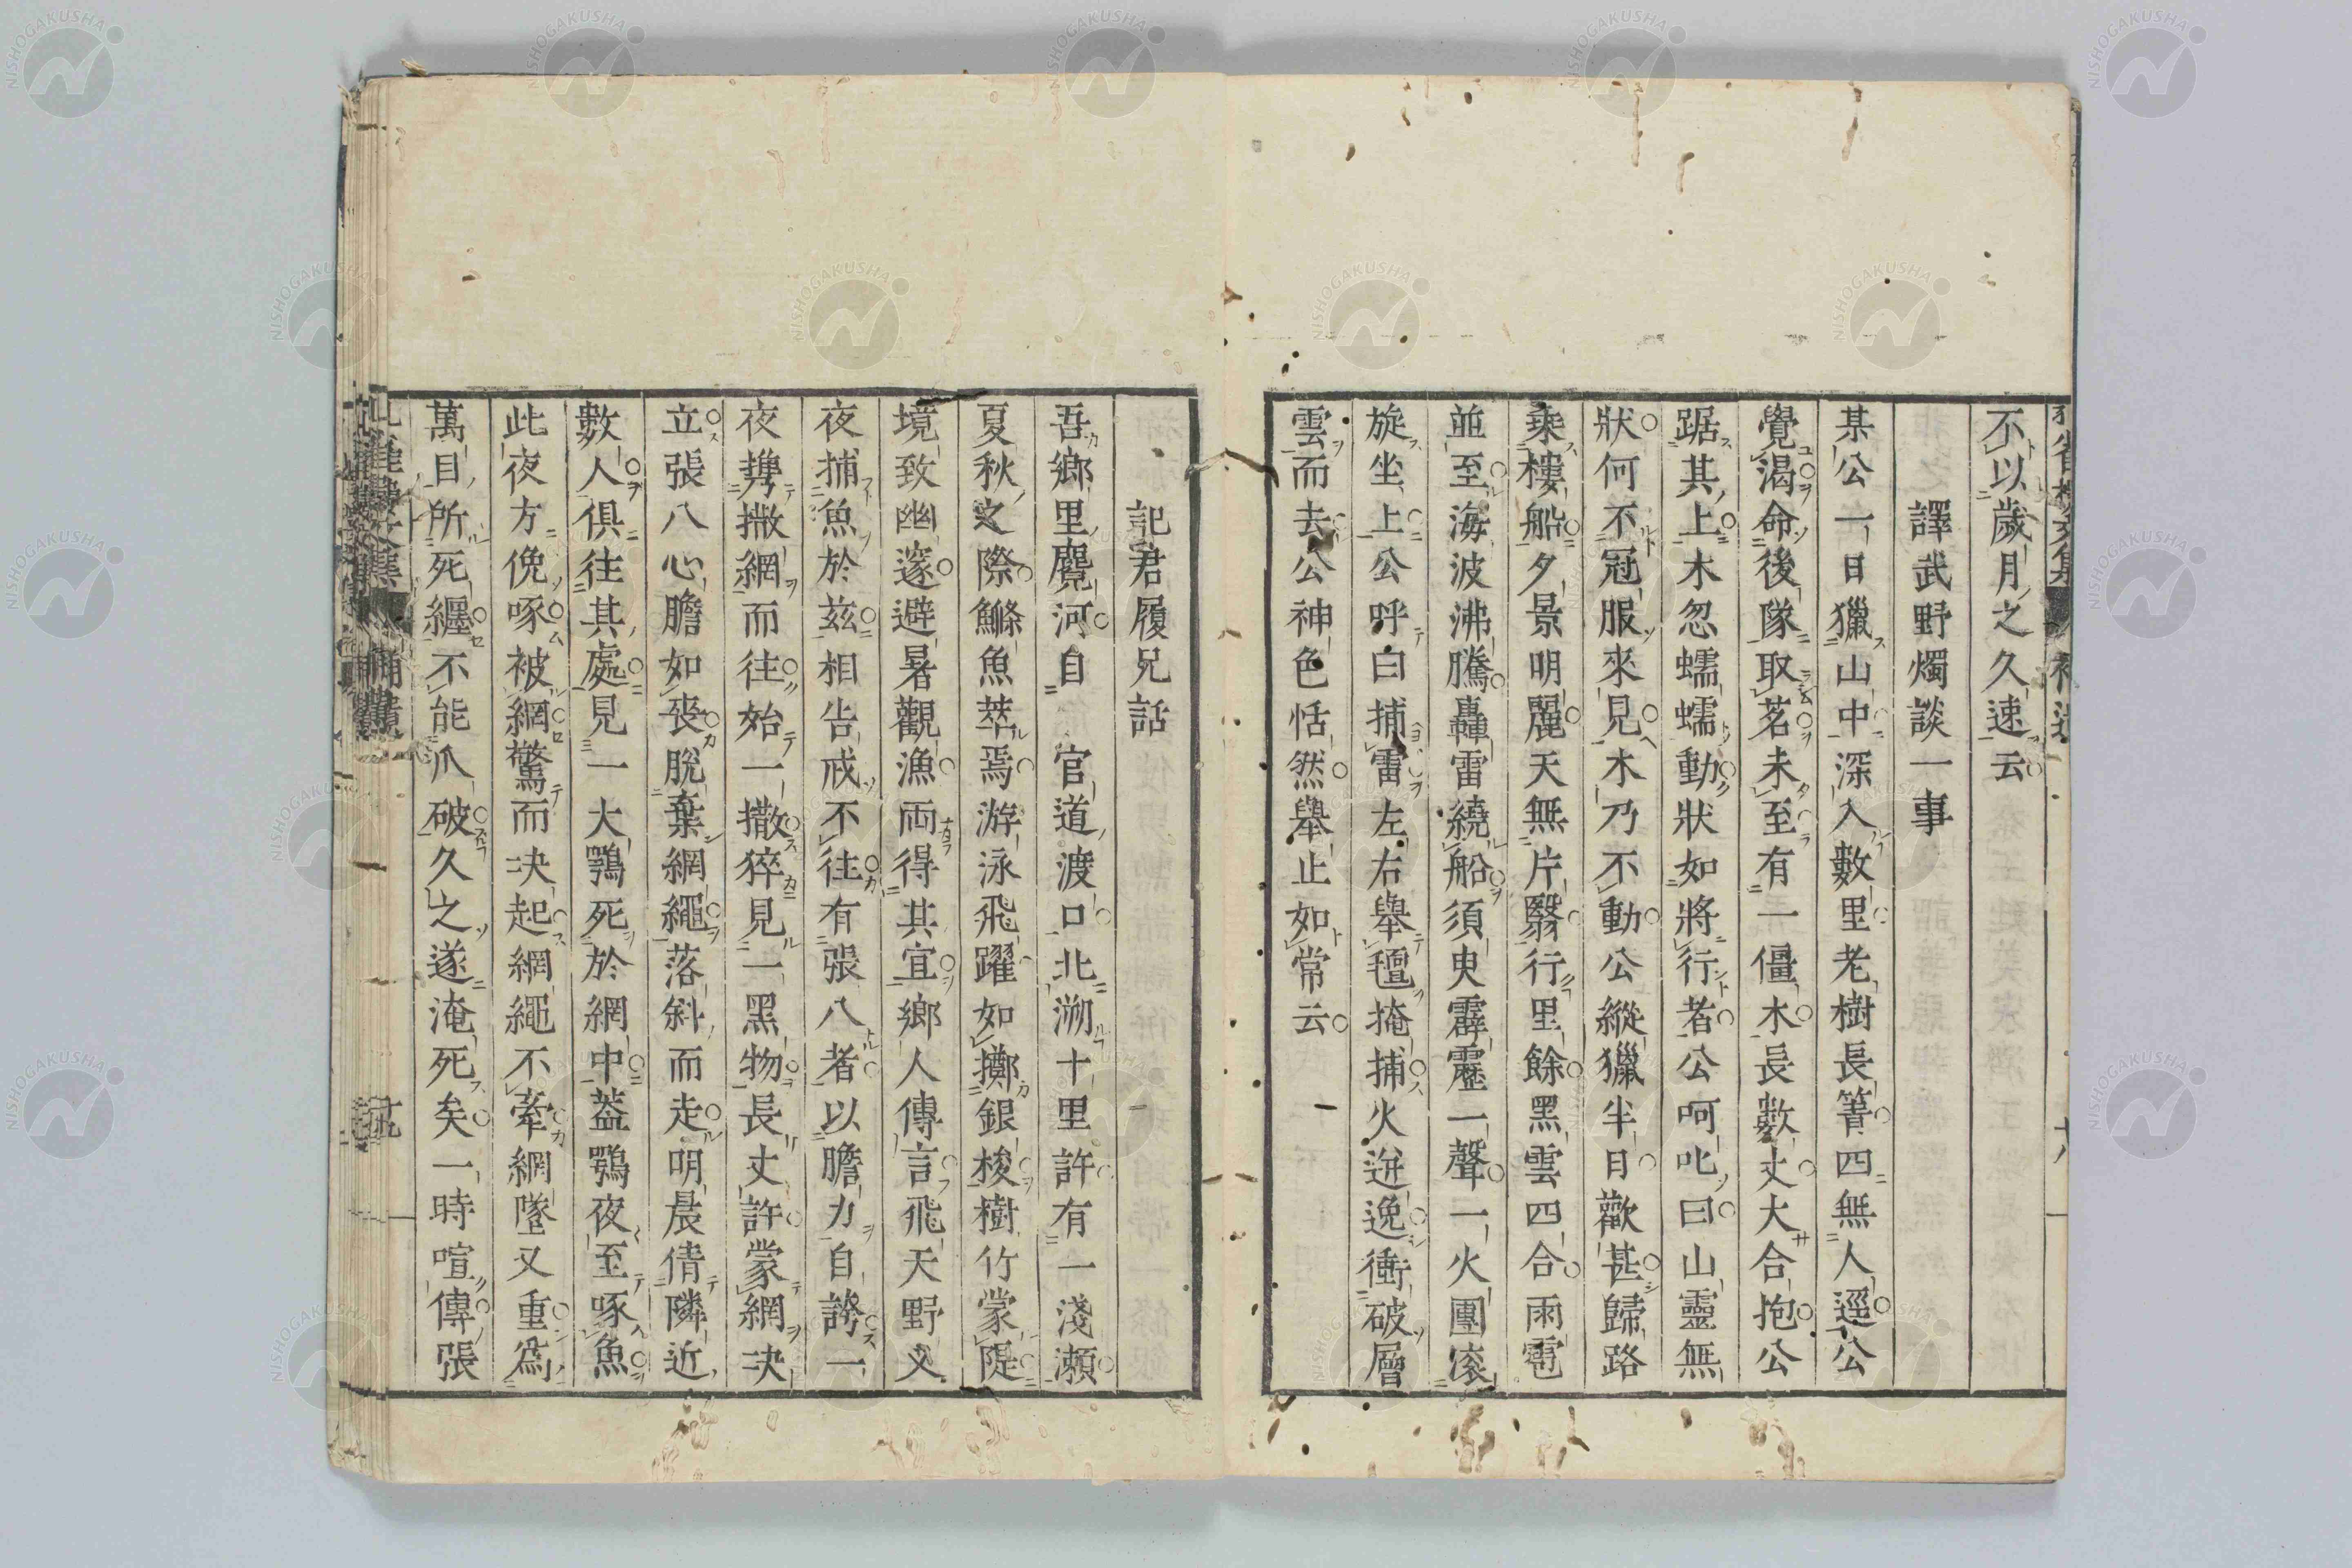 不以歲月之久速云
譯武野燭談一事
某公一日獵山中深入數里老樹長箐四無人逕公
覺渴命後隊取茗未至有一僵木長數丈大合抱公
踞其上木忽蠕蠕動狀如將行者公呵叱曰山靈無
狀何不冠服來見木乃不動公縱獵半日歡甚歸路
乘樓船夕景明麗天無片翳行里餘黑雲四合雨雹
並至海波沸騰轟雷繞船須臾霹靂一聲一火團滾
旋坐上公呼曰捕雷左右舉氊掩捕火迸逸衝破層
雲而去公神色恬然舉止如常云
記君履兄話
吾鄉里麑河自官道渡口北溯十里許有一淺瀨
夏秋之際鰷魚萃焉游泳飛躍如擲銀梭樹竹蒙隄
境致幽邃避暑觀漁両得其宜鄉人傳言飛天野叉
夜捕魚於茲相告戒不往有張八者以膽力自誇一
夜携撒網而往始一撒猝見一黑物長丈許蒙網決
立張八心膽如丧脫棄網繩落斜而走明晨倩隣近
數人俱往其處見一大鶚死於網中葢鶚夜至啄魚
此夜方俛啄被網驚而决起網繩不牽網墜又重為
萬目所死纏不能爪破久之遂淹死矣一時喧傳張
NISHOGAKUSHA